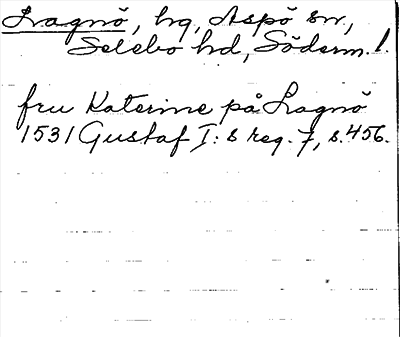 Lagnö, hg, Aspö sn,
Selebo hd, Söderm. l.
fru Katerine på Lagnö
1531 Gustaf I:s reg. 7, s. 456.